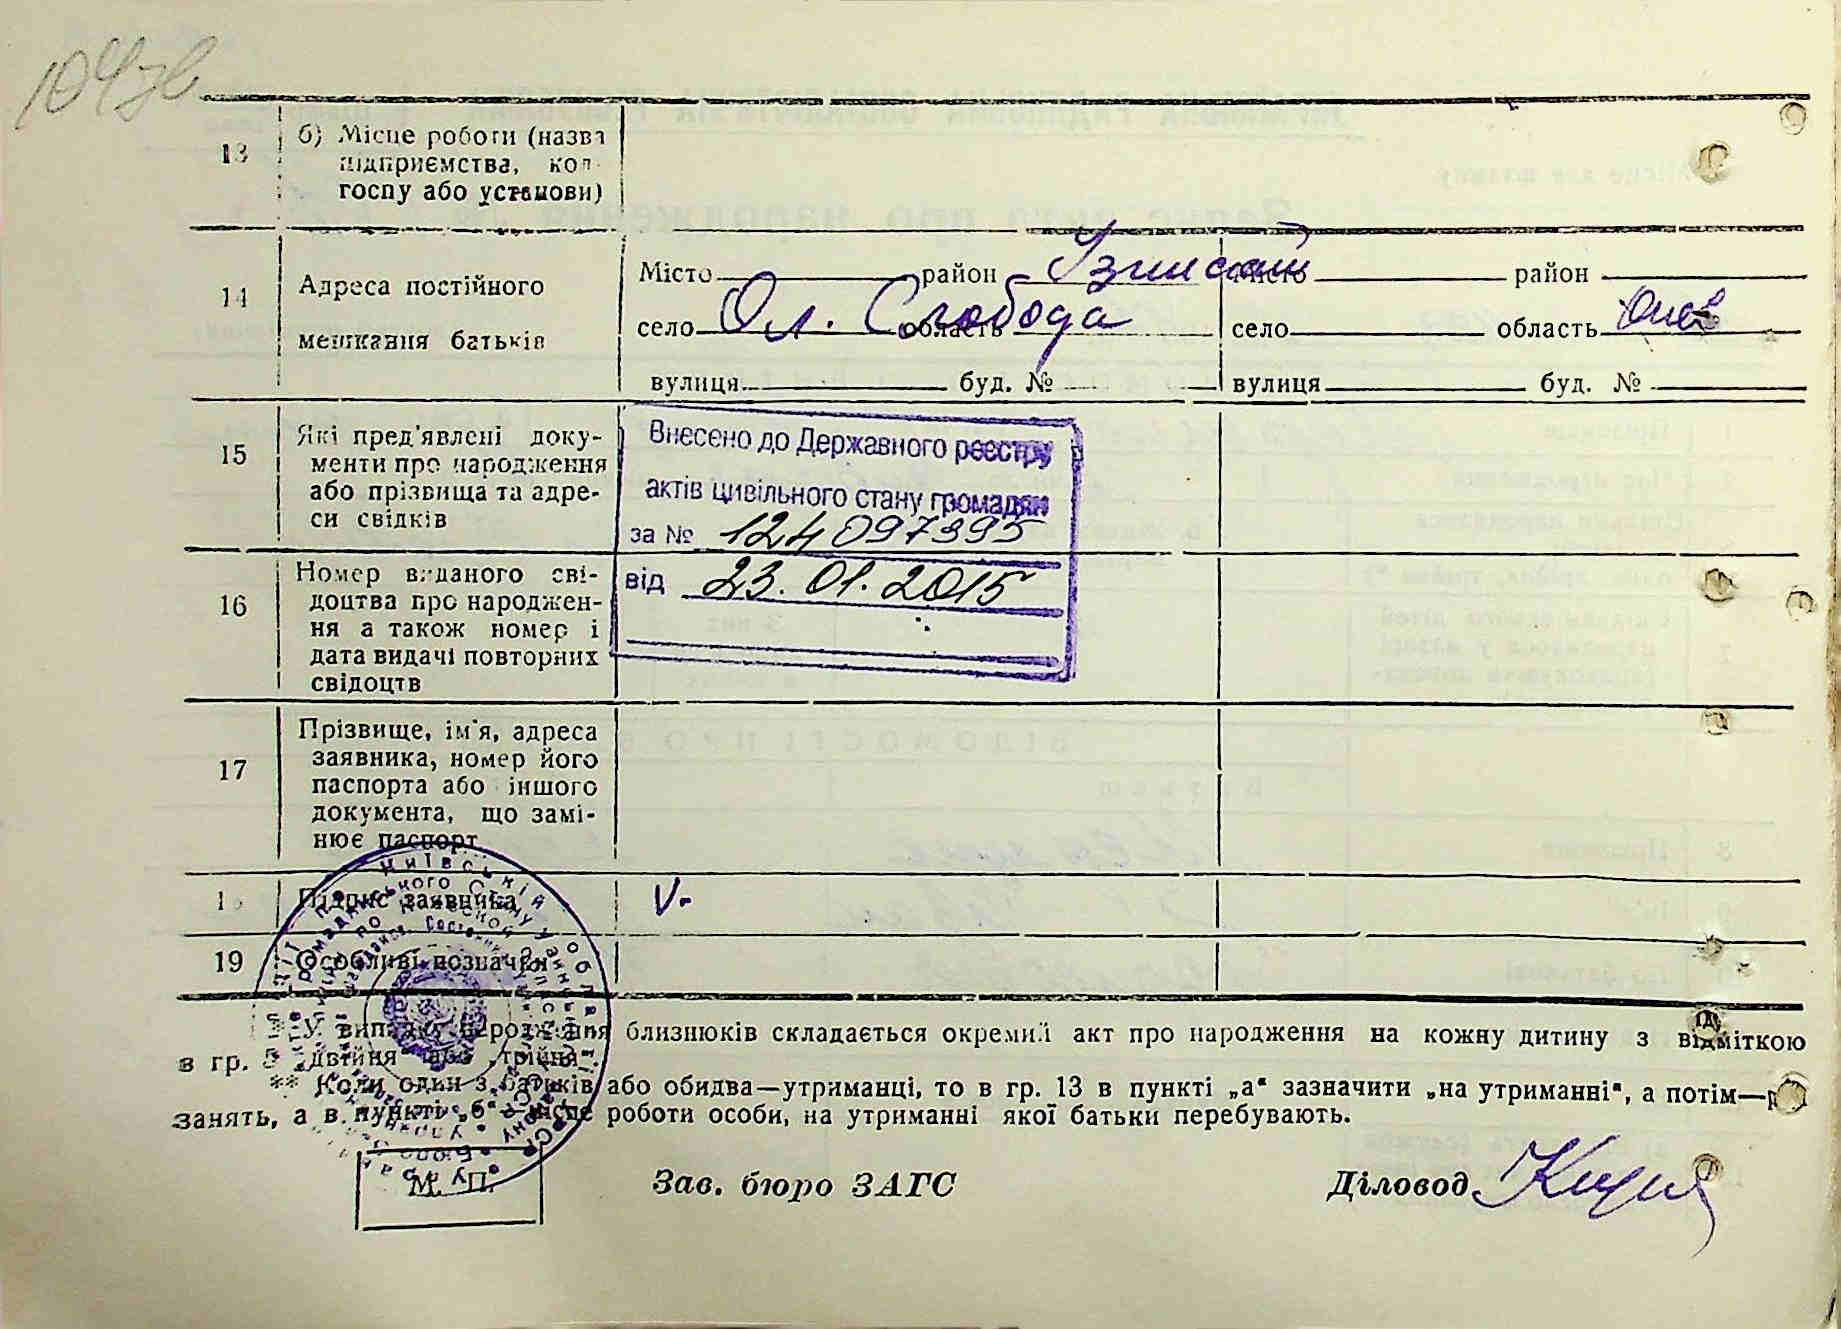 13 б) Місце роботи (назва
підприємства, кол-
госпу або установи)
14 Адреса постійного
мешкання батьків
Місто район Узинский Місто район
село Ол. Слобода область село область Киев
вулиця буд. № вулиця буд. №
15 Які пред'явлені доку-
менти про народження
або прізвища та адре-
си свідків
Внесено до Державного реєстру
актів цивільного стану громадян
за № 124097395
від 23.01.2015
16 Номер виданого сві-
доцтва про народжен-
ня а також номер і
дата видачі повторних
свідоцтв
17 Прізвище, ім'я, адреса
заявника, номер його
паспорта або іншого
документа, що замі-
нює паспорт
18 Підпис заявника V-
19 Особливі позначки
* У випадку народження близнюків складається окремий акт про народження на кожну дитину з відміткою
в гр. 5 „двійня" або „трійня".
** Коли один з батьків або обидва—утриманці, то в гр. 13 в пункті „а" зазначити „на утриманні", а потім—рід
занять, а в пункті „б"—місце роботи особи, на утриманні якої батьки перебувають.
М. П.
Зав. бюро ЗАГС Діловод